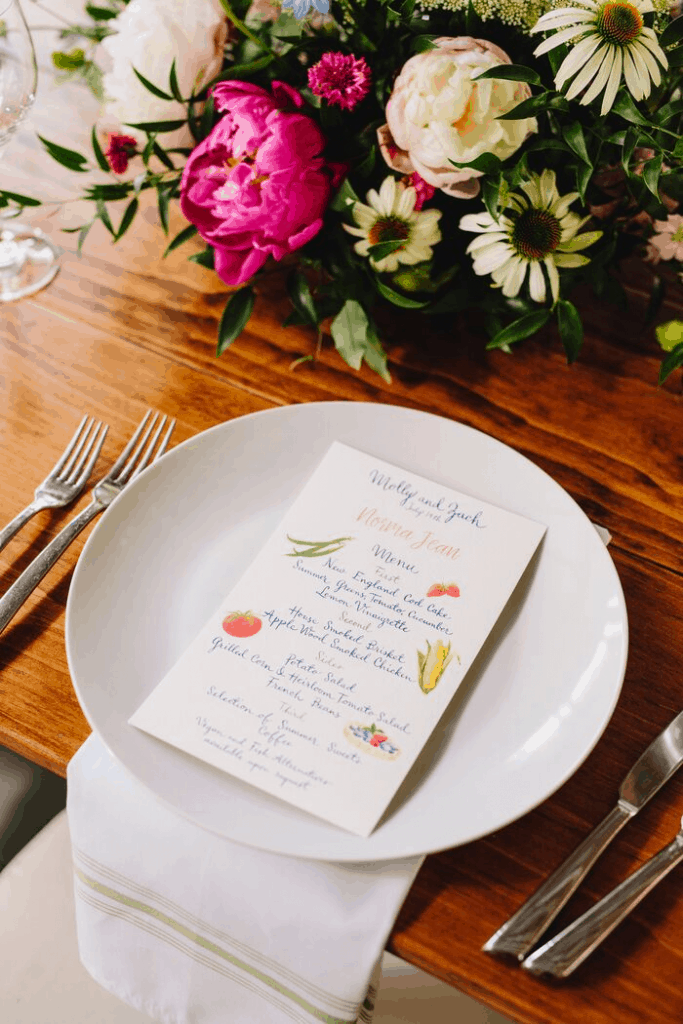 Molly and Zach
July 14th
Norma Jean
Menu
First
New England Cod Cake
Summer Greens, Tomato, Cucumber
Lemon Vinnigrette
Second
House Smoked Brisket
Apple Wood Smoked Chicken
Sides
Potato Salad
Grilled Corn & Heirloom Tomato Salad
French Beans
Third
Selection of Summer Sweets
Coffee
Vegan and Fish Alternatives
available upon request